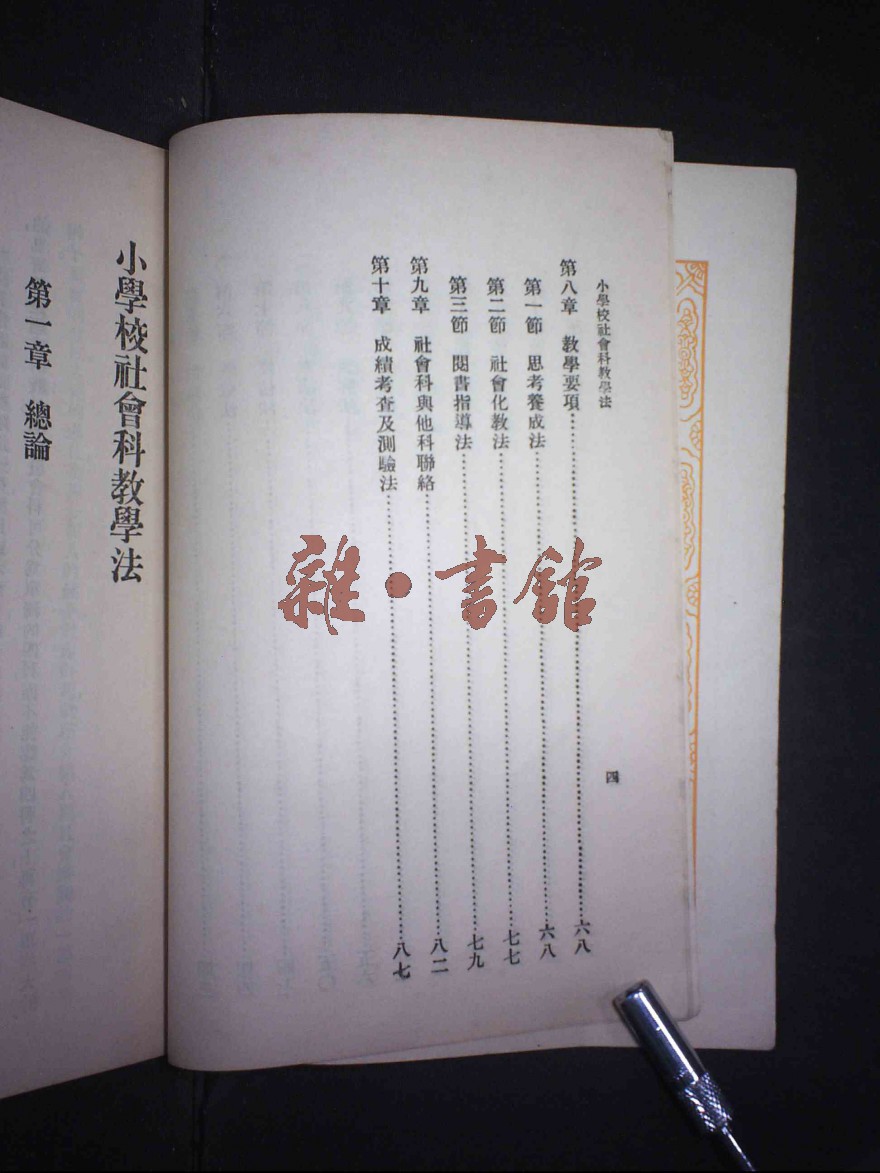 小學校社會科教學法
第八章　教學要項……六八
第一節　思考養成法……六八
第二節　社會化教法……七七
第三節　閱書指導法……七九
第九章　社會科與他科聯絡……八二
第十章　成績考查及測驗法……八七
四
雜・書館
小學校社會科教學法
第一章　總論